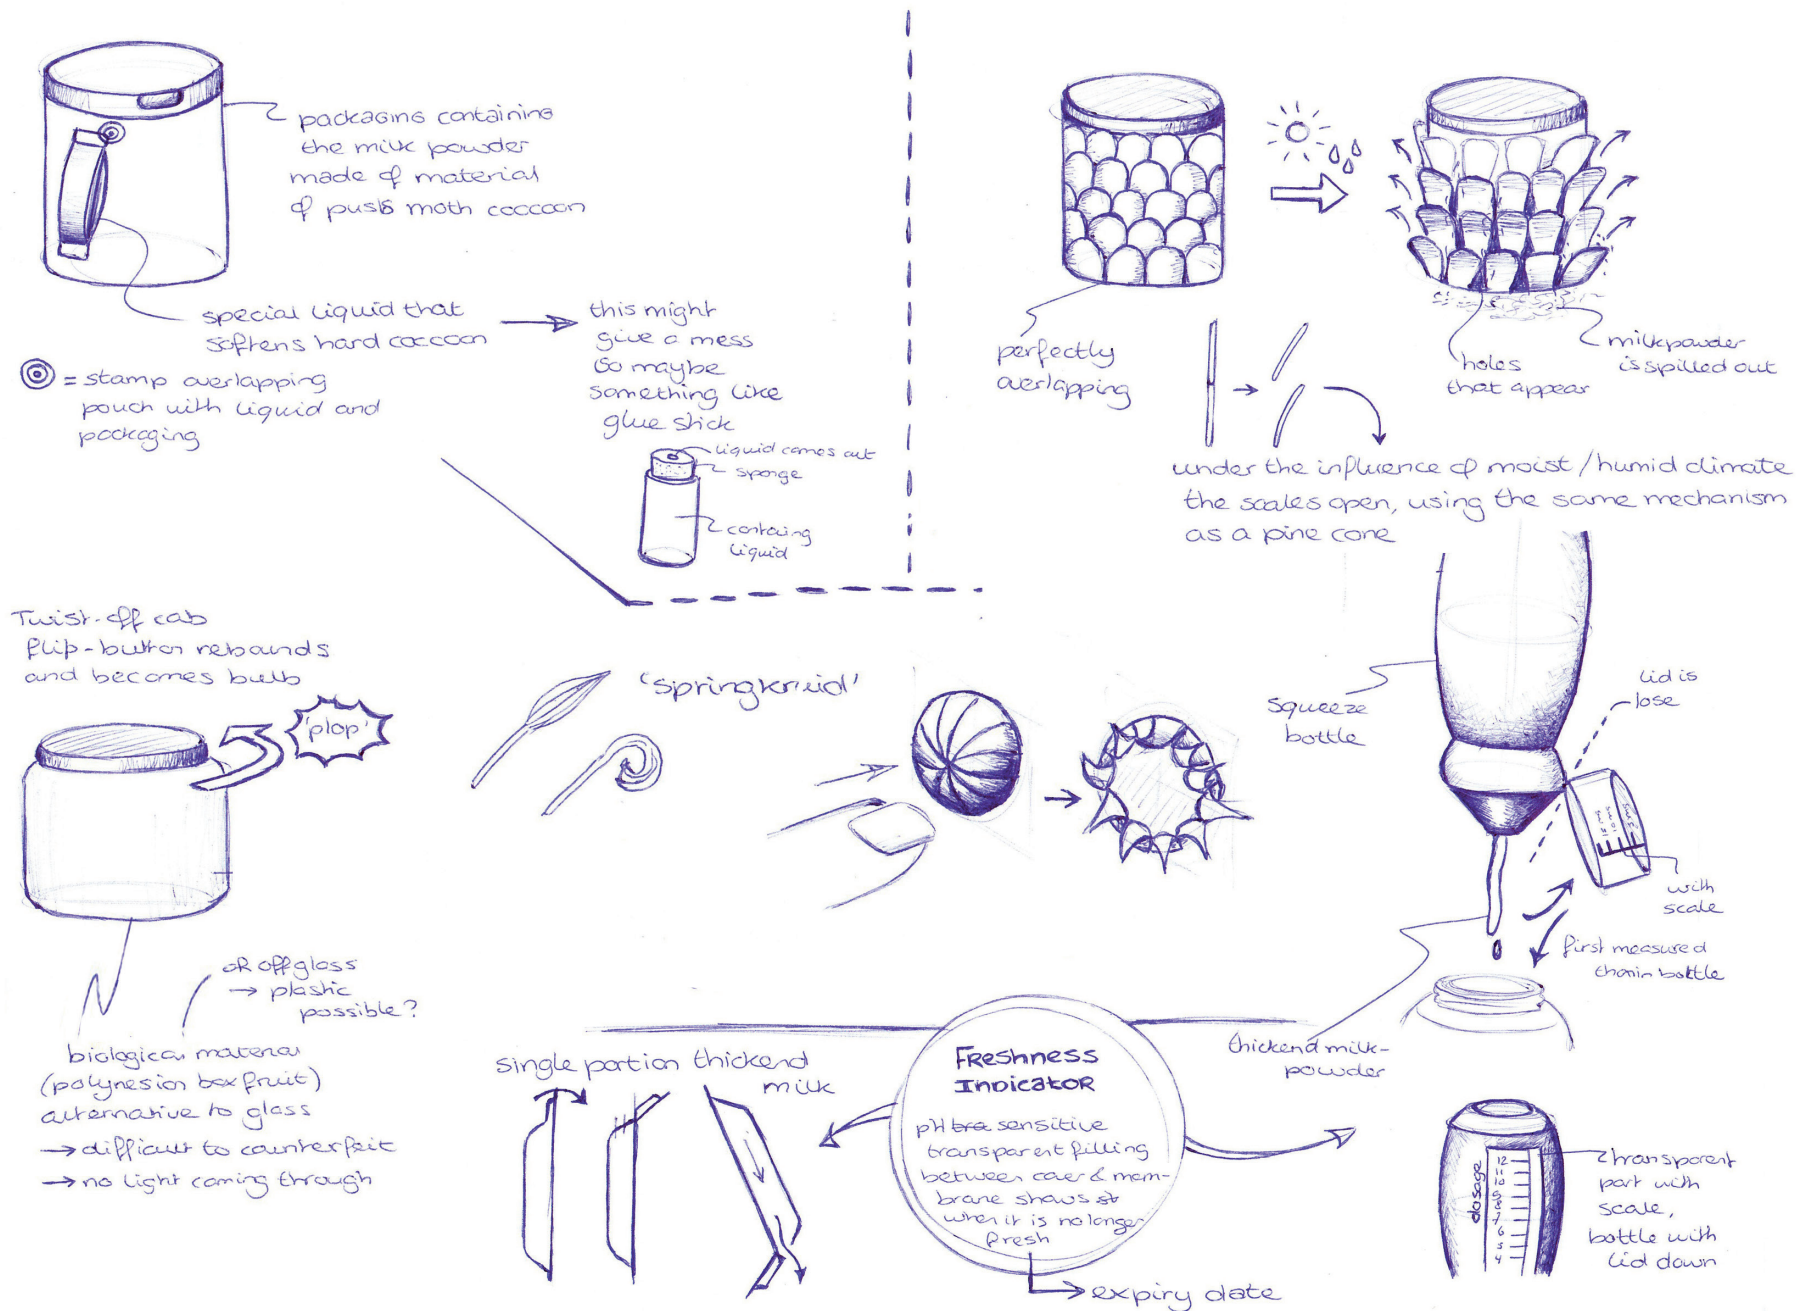 packaging containing
the milk powder
made of material
of puss moth coccoon
special liquid that
softens hard coccoon
this might
give a mess
so maybe
something like
glue stick
= stamp overlapping
pouch with liquid and
packaging
liquid comes out
sponge
containg
liquid
perfectly
overlapping
holes
that appear
milkpowder
is spilled out
under the influence of moist/humid climate
the scales open, using the same mechanism
as a pine cone
Twist-off cab
flip-button rebounds
and becomes bulb
'plop'
'springkruid'
or off glass
→ plastic
possible?
biological material
(polynesian box fruit)
alternative to glass
→ difficult to counterfeit
→ no light coming through
squeeze
bottle
lid is
lose
5 ml
10 ml
15 ml
with
scale
first measured
than in bottle
thickend milk-
powder
single portion thickend
milk
Freshness
Indicator
pH sensitive
transparent filling
between cover & mem-
brane shows
when it is no longer
fresh
expiry date
dosage
12
11
10
9
8
7
6
5
4
transparent
part with
scale,
bottle with
lid down